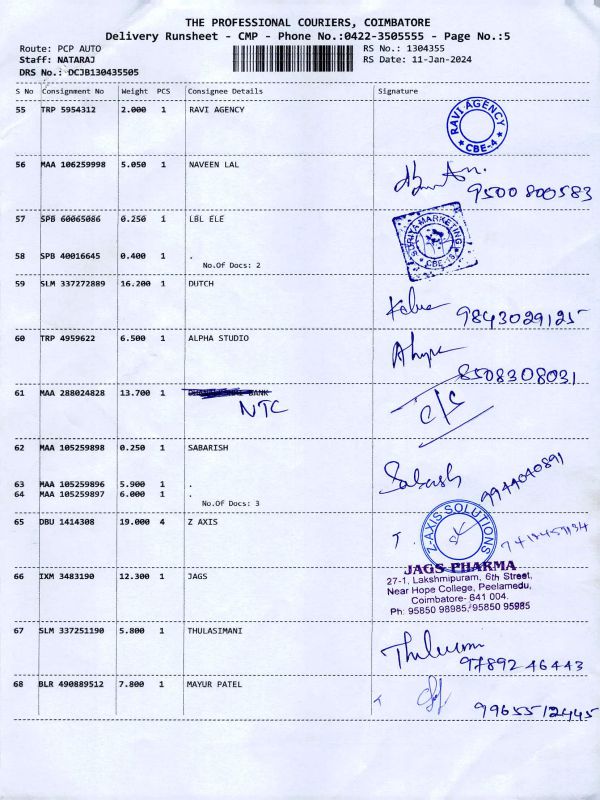 THE PROFESSIONAL COURIERS, COIMBATORE
Delivery Runsheet - CMP - Phone No.:0422-3505555 - Page No.:5
Route: PCP AUTO
RS No.: 1304355
Staff: NATARAJ
RS Date: 11-Jan-2024
DRS No.: DCJB130435505
S No Consignment No Weight PCS Consignee Details Signature
55 TRP 5954312 2.000 1 RAVI AGENCY
RAVI AGENCY
CBE-4
56 MAA 106259998 5.050 1 NAVEEN LAL
9500800583
57 SPB 60065086 0.250 1 LBL ELE
SURIYA MARKETING
58 SPB 40016645 0.400 1 .
No.Of Docs: 2
59 SLM 337272889 16.200 1 DUTCH
9843029125
60 TRP 4959622 6.500 1 ALPHA STUDIO
8508308031
61 MAA 288024828 13.700 1 BANK
NTC
C/S
62 MAA 105259898 0.250 1 SABARISH
63 MAA 105259896 5.900 1 .
64 MAA 105259897 6.000 1 .
No.Of Docs: 3
Sabash
9944040891
65 DBU 1414308 19.000 4 Z AXIS
Z-AXIS SOLUTIONS
66 IXM 3483190 12.300 1 JAGS
JAGS PHARMA
27-1, Lakshmipuram, 6th Street,
Near Hope College, Peelamedu,
Coimbatore- 641 004.
Ph: 95850 98985, 95850 95985
67 SLM 337251190 5.800 1 THULASIMANI
97892 46443
68 BLR 490889512 7.800 1 MAYUR PATEL
9965512445